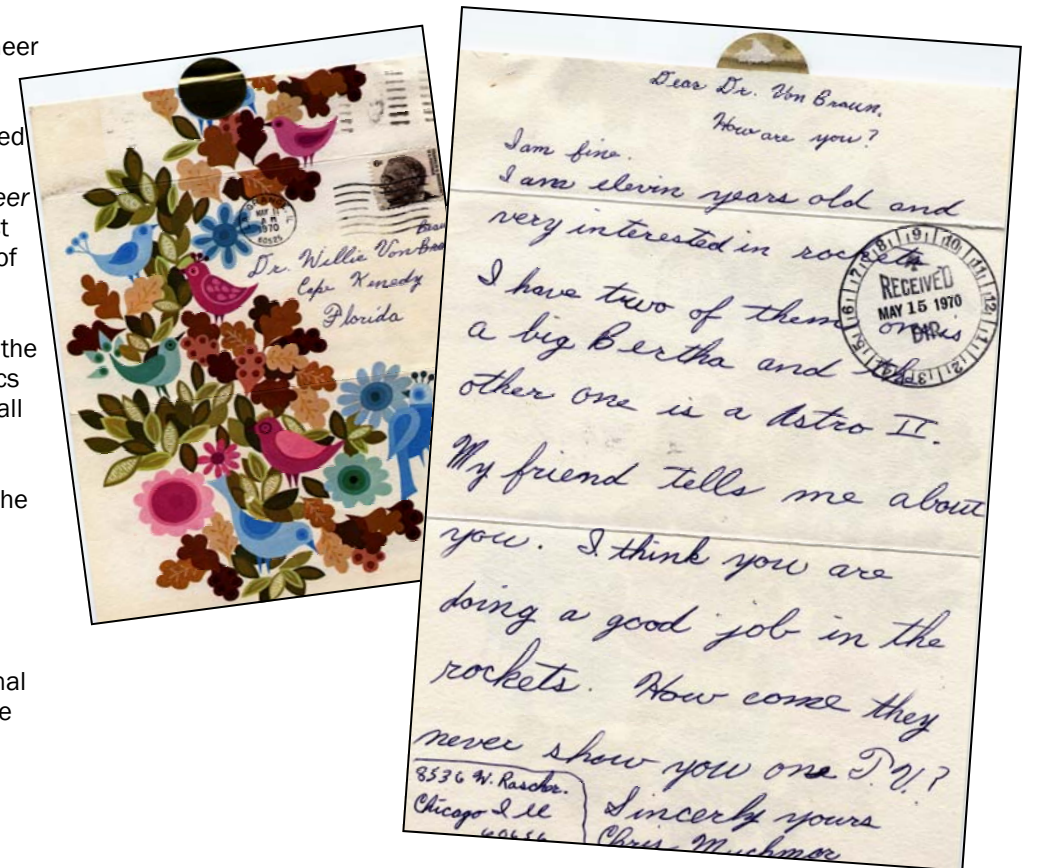 eer
ed
eer
t
of
the
cs
all
he
nal
e
6c
MAY 11
1970
60525
Dr. Willie Von
Cape Kenedy
Florida
Dear Dr. Von Braun,
How are you?
I am fine.
I am elevin years old and
very interested in rockets
I have two of them one is
a big Bertha and the
other one is a Astro II.
My friend tells me about
you. I think you are
doing a good job in the
rockets. How come they
never show you one T.V.?
Sincerly yours
Chris Muchmor
8536 W. Rascher.
Chicago Ill
60656
6 7 8 9 10 11 12 1 2 3 4 5
RECEIVED
MAY 15 1970
DIR